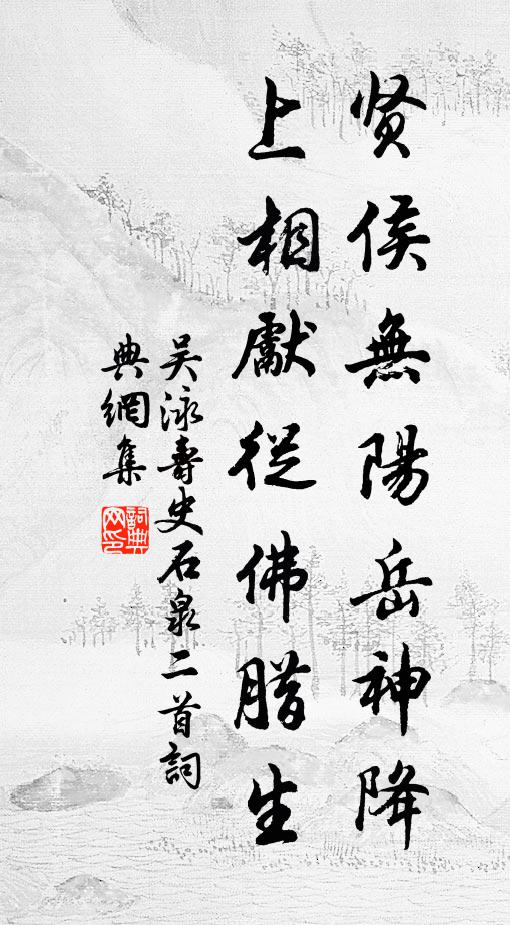 贤侯無陽岳神降
上相獻從佛腊生
吴泳壽史石泉二首詞
典網集
詞典
网印